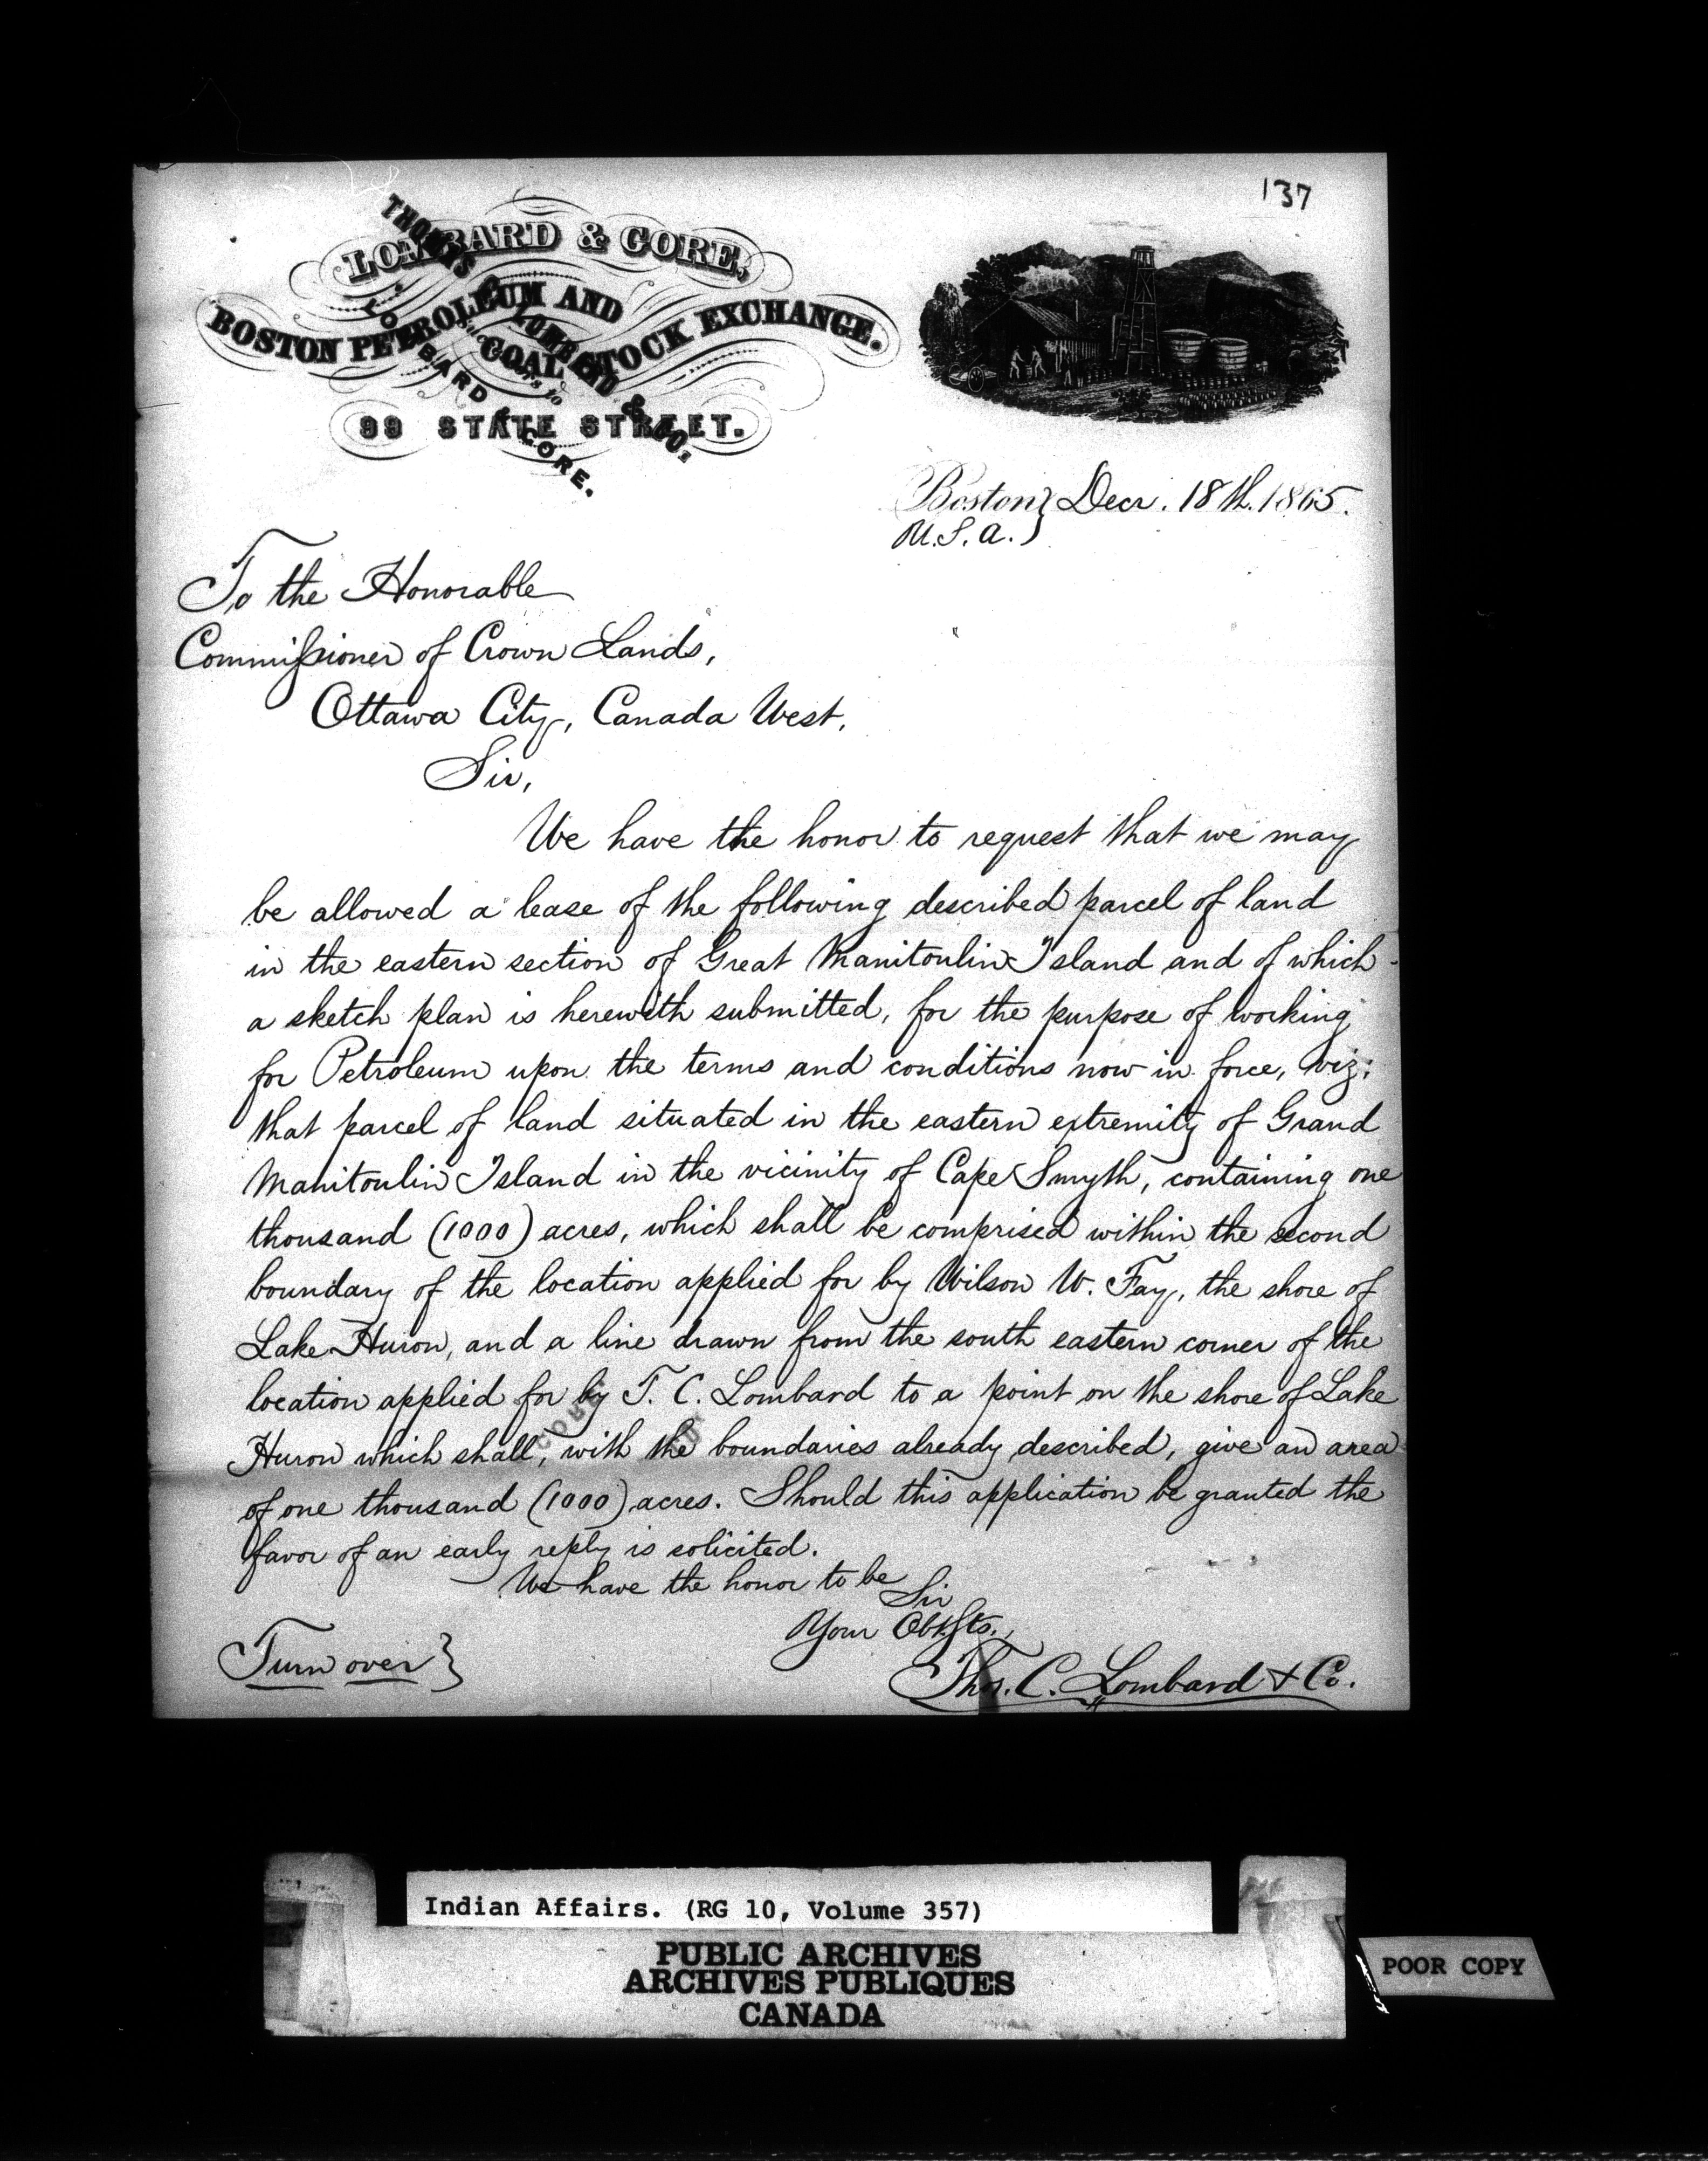 137
LOMBARD & GORE,
BOSTON PETROLEUM AND
COAL STOCK EXCHANGE.
99 STATE STREET.
THOMAS C. LOMBARD & CO.
Successors to
LOMBARD & GORE.
Boston } Decr. 18th. 1865.
U.S.A. }
To the Honorable
Commissioner of Crown Lands,
Ottawa City, Canada West,
Sir,
We have the honor to request that we may
be allowed a lease of the following described parcel of land
in the eastern section of Great Manitoulin Island and of which
a sketch plan is herewith submitted, for the purpose of working
for Petroleum upon the terms and conditions now in force, viz:
that parcel of land situated in the eastern extremity of Grand
Manitoulin Island in the vicinity of Cape Smyth, containing one
thousand (1000) acres, which shall be comprised within the second
boundary of the location applied for by Wilson W. Fay, the shore of
Lake Huron, and a line drawn from the south eastern corner of the
location applied for by T. C. Lombard to a point on the shore of Lake
Huron which shall, with the boundaries already described, give an area
of one thousand (1000) acres. Should this application be granted the
favor of an early reply is solicited.
We have the honor to be
Sir
Your Obt Sts.,
Turn over }
Thos. C. Lombard & Co.
Indian Affairs. (RG 10, Volume 357)
PUBLIC ARCHIVES
ARCHIVES PUBLIQUES
CANADA
POOR COPY